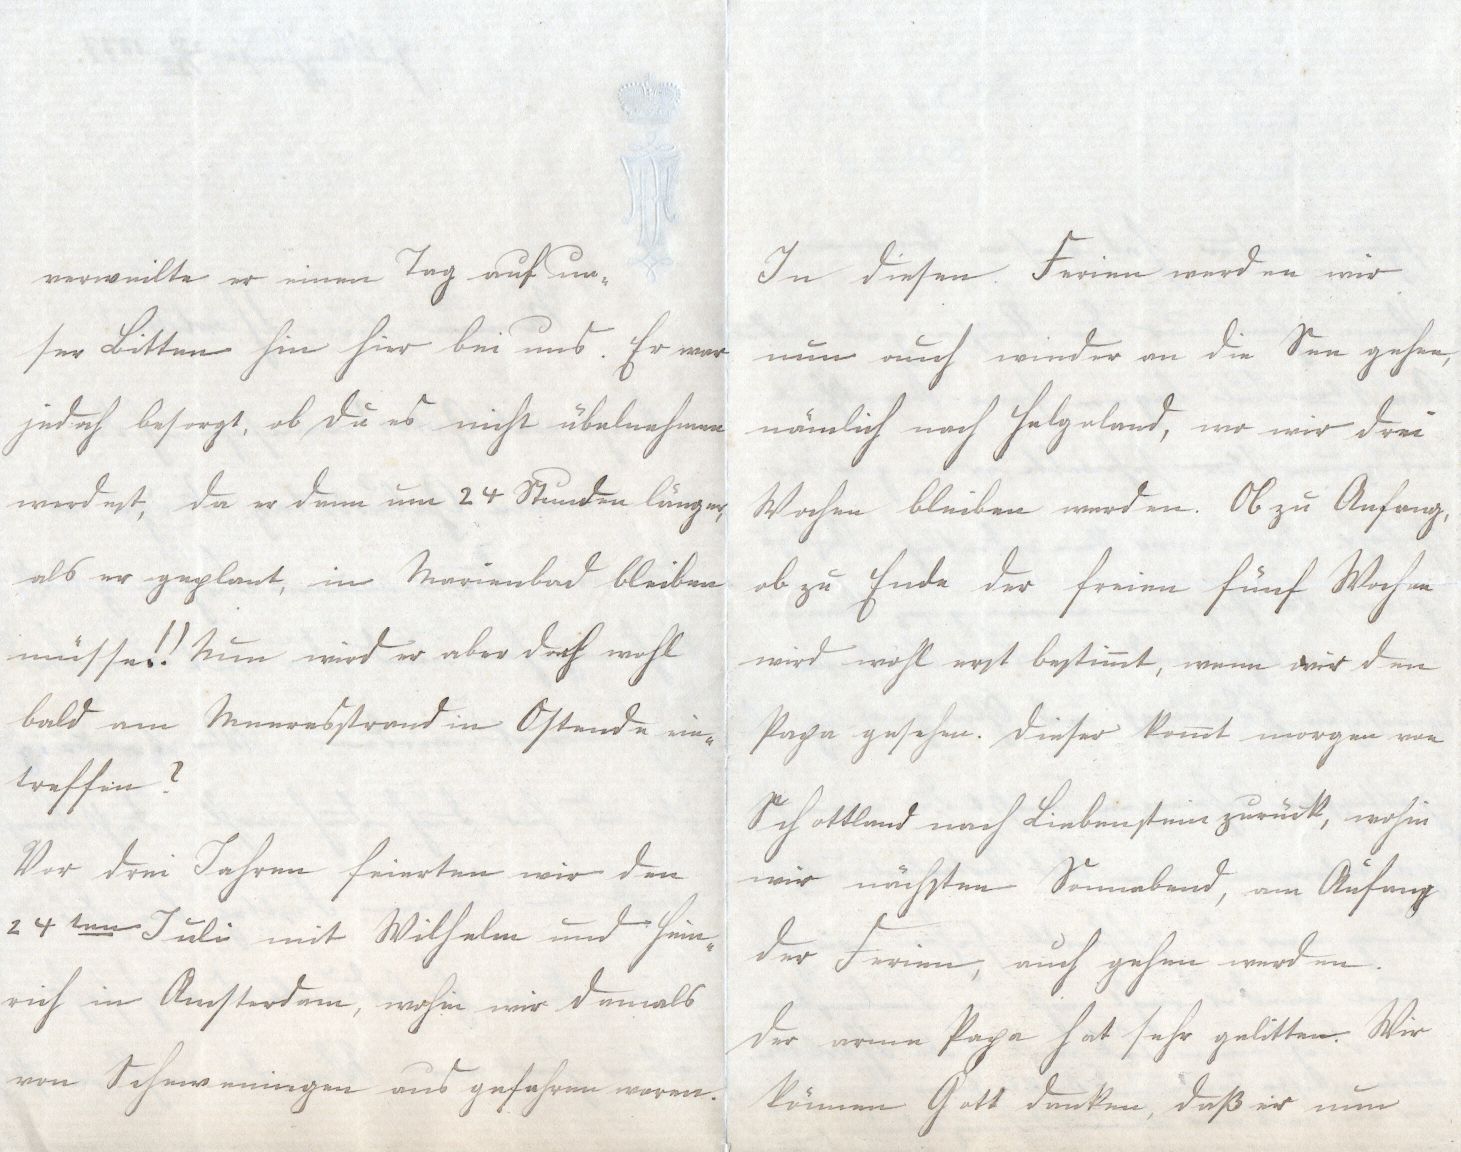 verweilte er einen Tag auf un-
ser Bitten hin hier bei uns. Er war
jedoch besorgt, ob Du es nicht übelnehmen
werdest, da er dann um 24 Stunden länger,
als er geplant, in Marienbad bleiben
müsse!! Nun wird er aber doch wohl
bald am Meeresstrand in Ostende ein-
treffen?
Vor drei Jahren feierten wir den
24ten Juli mit Wilhelm und Hein-
rich in Amsterdam, wohin wir damals
von Scheweningen aus gefahren waren.
In diesen Ferien werden wir
nun auch wieder an die See gehen,
nämlich nach Helgoland, wo wir drei
Wochen bleiben werden. Ob zu Anfang,
ob zu Ende der freien fünf Wochen
wird wohl erst bestimmt, wenn wir den
Papa gesehen. Dieser kommt morgen von
Schottland nach Liebenstein zurück, wohin
wir nächsten Sonnabend, am Anfang
der Ferien, auch gehen werden.
Der arme Papa hat sehr gelitten. Wir
können Gott danken, daß er nun